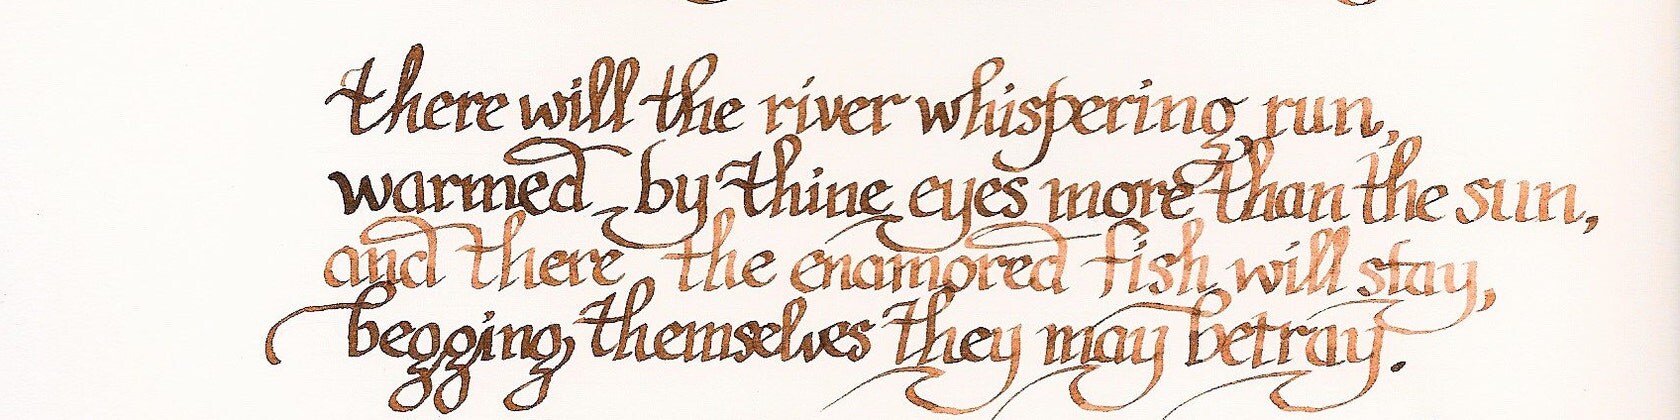 there will the river whispering run,
warmed by thine eyes more than the sun,
and there the enamored fish will stay,
begging themselves they may betray.